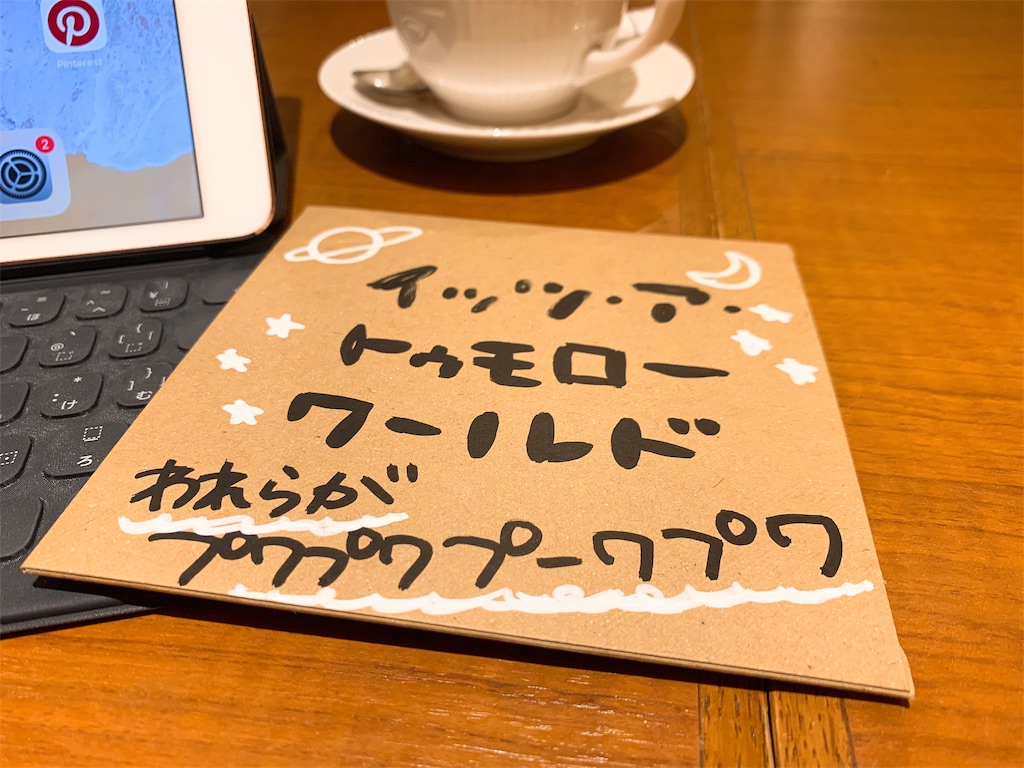 Pinterest
2
イッツ・ア・
トゥモロー
ワールド
われらが
プワプワプーワプワ
~ へ
¥ ー
@ ゛
{ [ ゜
* : け
} ] む
ろ